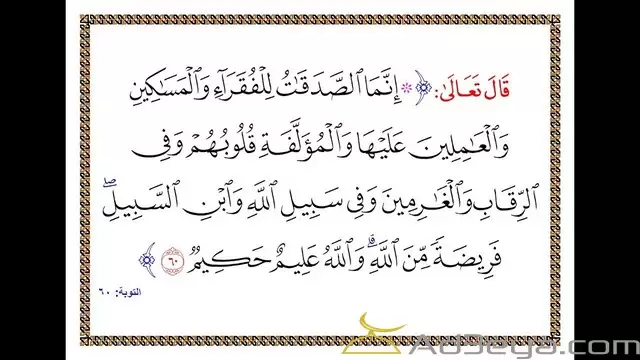 قَالَ تَعَالَىٰ: ﴿ ۞ إِنَّمَا ٱلصَّدَقَٰتُ لِلۡفُقَرَآءِ وَٱلۡمَسَٰكِينِ
وَٱلۡعَٰمِلِينَ عَلَيۡهَا وَٱلۡمُؤَلَّفَةِ قُلُوبُهُمۡ وَفِي
ٱلرِّقَابِ وَٱلۡغَٰرِمِينَ وَفِي سَبِيلِ ٱللَّهِ وَٱبۡنِ ٱلسَّبِيلِۖ
فَرِيضَةٗ مِّنَ ٱللَّهِۗ وَٱللَّهُ عَلِيمٌ حَكِيمٞ ٦٠ ﴾
التوبة: ٦٠
AdDeya.com